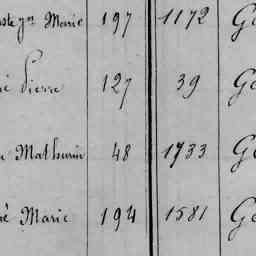 Marie 197 1172 Ge
Pierre 127 39 Ge
Mathurin 48 1733 Ge
Marie 194 1581 Ge